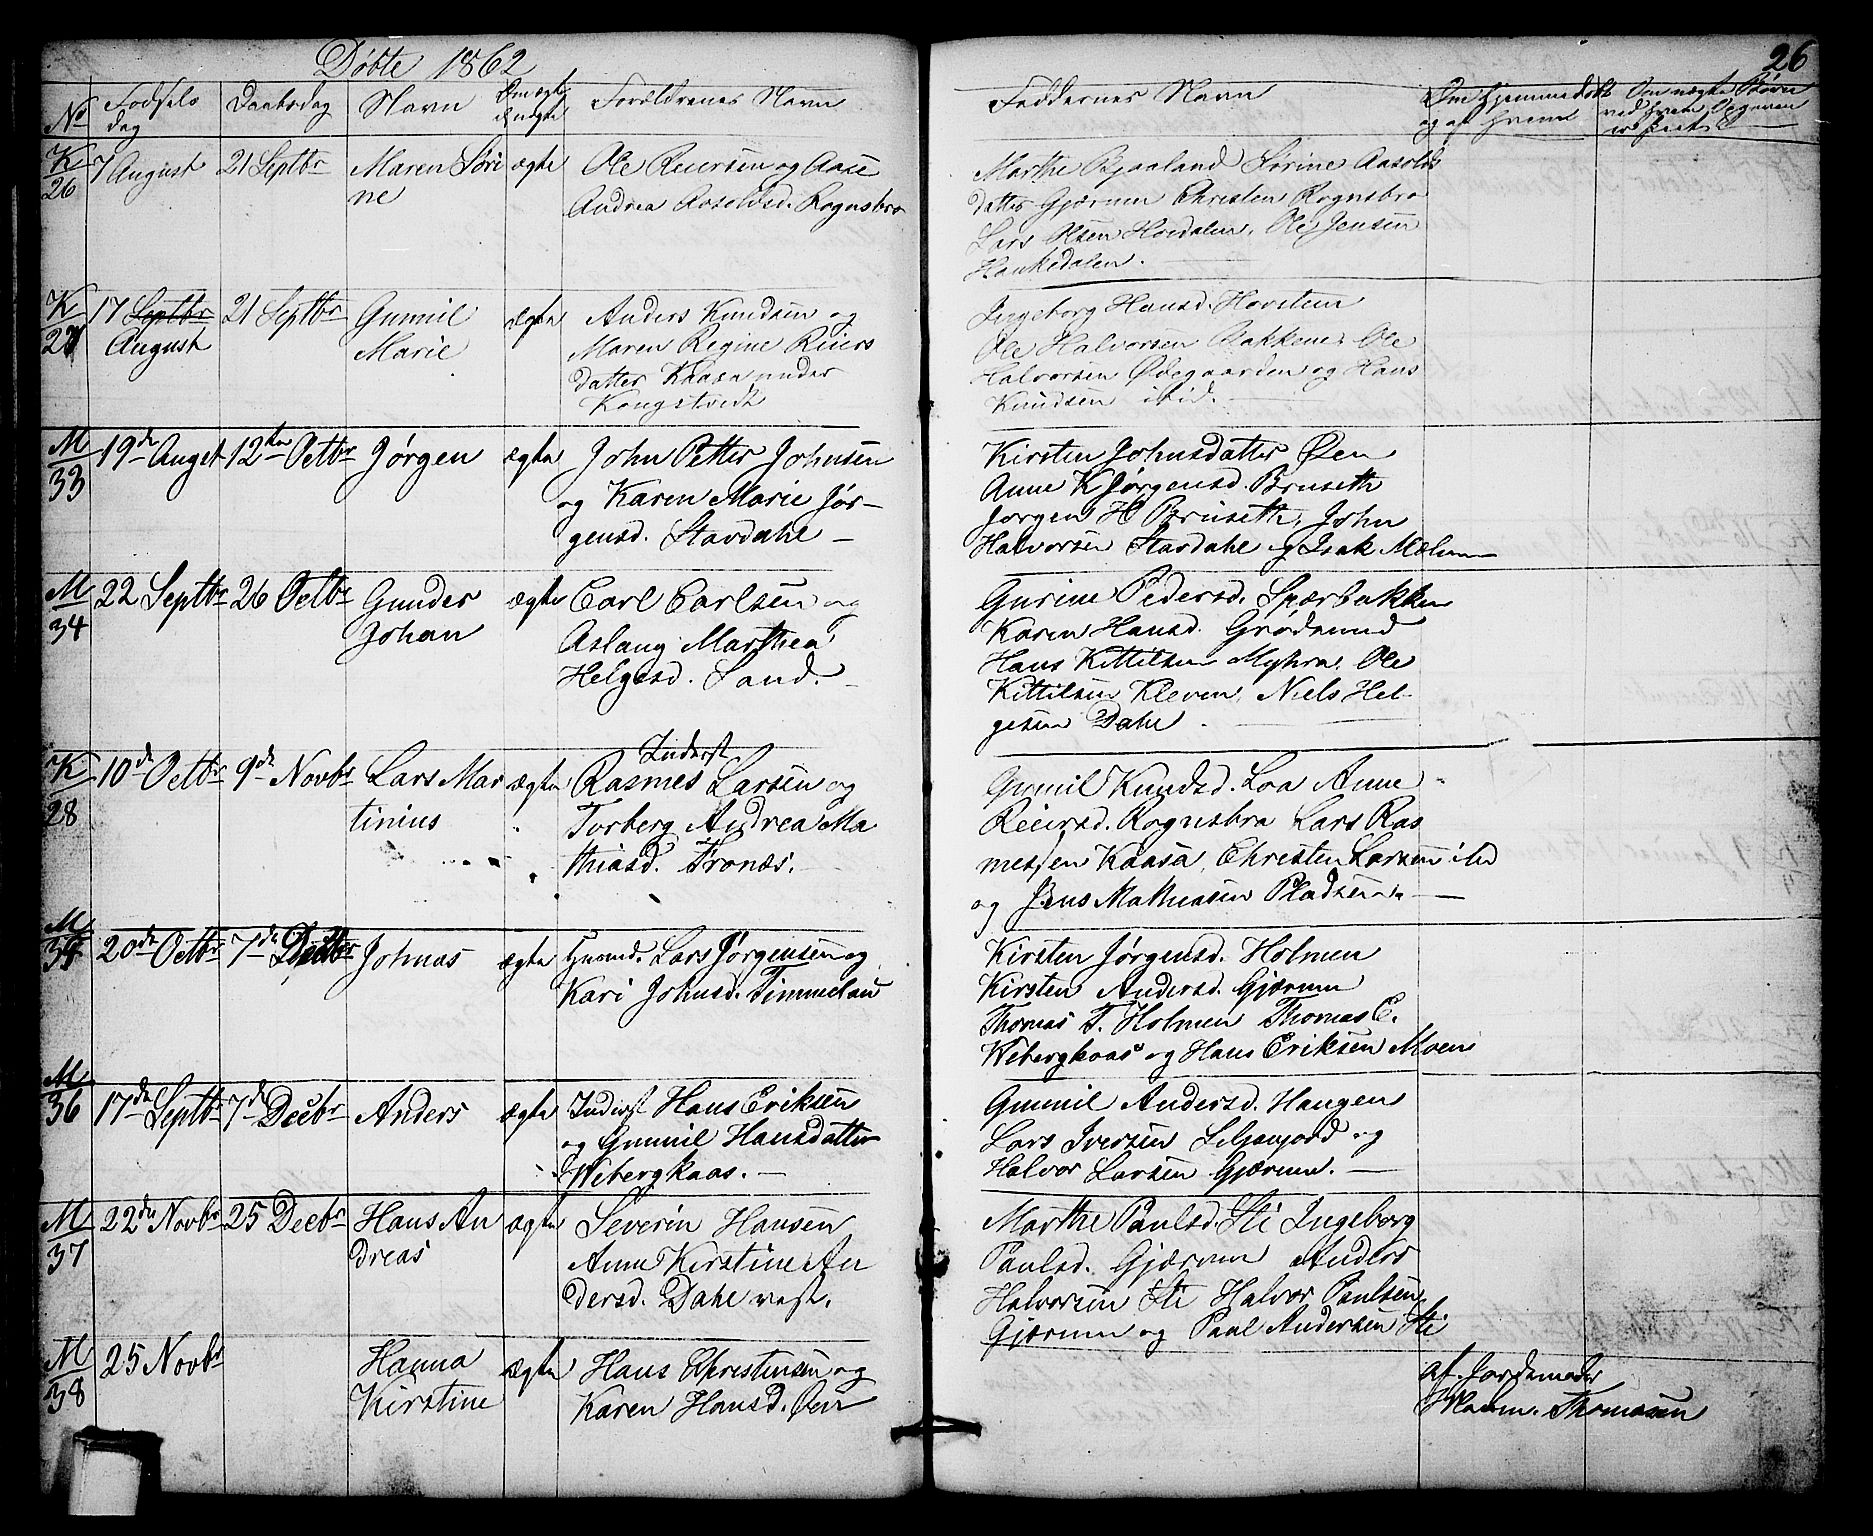 Døbte 1862
26
No
Fødsels
dag
Daabsdag
Navn
Om ægte
el. uægte
Forældrenes Navn
Faddernes Navn
Om hjemmedøbt
og af hvem
Om uægte Børn
ved hvem Opgaven
er skeet
K
26
7 August
21 Septbr
Maren Søri
ne
ægte
Ole Reiersen og Aase
Andrea Aasoldsd. Rognsbro
Marthe Bjaaland Sørine Aasolds
datter Gjærum Christen Rognsbro
Lars Olsen Hovdalen, Ole Jensen
Hankedalen.
K
27
17 Septbr
August
21 Septbr
Gunnil
Marie
ægte
Anders Knudsen og
Maren Regine Reiers
datter Kaasa under
Kongstvedt
Ingeborg Hansd. Hovstein
Ole Halvorsen Bakkene, Ole
Halvorsen Ødegaarden og Hans
Knudsen ibid.
M
33
19de Augst
12te Octbr
Jørgen
ægte
John Petter Johnsen
og Karen Marie Jør-
gensd. Stavdahl
Kirsten Johnsdatter Øen
Anne K Jørgensd. Bruseth
Jørgen H Bruseth, John
Halvorsen Stavdahl og Isak Mælum
M
34
22 Septbr
26 Octbr
Gunder
Johan
ægte
Carl Carlsen og
Aslaug Marthea
Helgesd. Sand.
Gurine Pedersd. Spærbakken
Karen Hansd. Grødsund
Hans Kittilsen Myhra, Ole
Kittilsen Kleven, Niels Hel-
gesen Dahl
K
28
10de Octbr
9de Novbr
Lars Mar
tinius
ægte
Inderst
Rasmes Larsen og
Torberg Andrea Ma
thiasd. Tronæs.
Gunnil Knudsd. Loa Anne
Reiersd. Rognsbro Lars Ras
messen Kaasa, Christen Larsen ibd
og Jens Mathiasen Pladsen.
M
35
20de Octbr
7de Decbr
Johnas
ægte
Gaard. Lars Jørgensen og
Kari Johnsd. Timmelau
Kirsten Jørgensd. Holmen
Kirsten Andersd. Gjærum
Thomas T. Holmen Thomas E.
Webergkaas og Hans Eriksen Moen
M
36
17de Septbr
7de Decbr
Anders
ægte
Inderst Hans Eriksen
og Gunnil Hansdatter
Webergkaas.
Gunnil Andersd. Haugen
Lars Iversen Seljeyord og
Halvor Larsen Gjærum.
M
37
22de Novbr
25 Decbr
Hans An
dreas
ægte
Severin Hansen
Anne Kirstine An
dersd. Dahl vest.
Marthe Paulsd. Sti Ingeborg
Paulsd. Gjærum Anders
Halvorsen Sti Halvor Paulsen
Gjærum og Paul Andersen Sti
M
38
25 Novbr
Hanna
Kirstine
ægte
Hans Christensen og
Karen Hansd. Øen
af Jordemoder
Madm. Thomasen